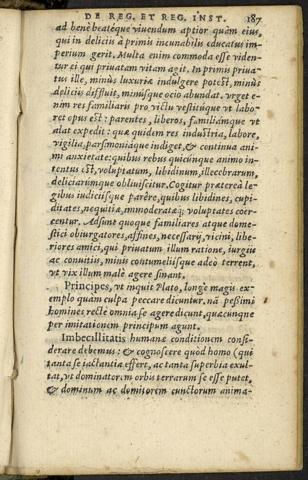 DE REG. ET REG. INST. 187
ad benè beatéque viuendum aptior quàm eius,
qui in deliciis à primis incunabilis educatus im-
perium gerit. Multa enim commoda esse viden-
tur ei qui priuatam vitam agit. In primis priua-
tus ille, minùs luxuriæ indulgere potest, minùs
deliciis diffluit, minúsque ocio abundat. vrget e-
nim res familiaris pro victu vestitúque vt labo-
ret opus est: parentes, liberos, familiámque vt
alat expedit: quæ quidem res industria, labore,
vigilia, parsimoniáque indiget, & continua ani-
mi anxietate: quibus rebus quicúnque animo in-
tentus est, voluptatum, libidinum, illecebrarum,
deliciarúmque obliuiscitur. Cogitur prætereà le-
gibus iudiciísque parêre, quibus libidines, cupi-
ditates, nequitiæ, immoderatæq; voluptates coër-
centur. Adsunt quoque familiares atque dome-
stici obiurgatores, affines, necessarij, vicini, libe-
riores amici, qui priuatum illum ratione, iurgiis
ac conuitiis, minis contumeliísque adeò terrent,
vt vix illum malè agere sinant.
Principes, vt inquit Plato, longè magis ex-
emplo quàm culpa peccare dicuntur. nā pessimi
homines rectè omnia se agere dicunt, quæcunque
per imitationem principum agunt.
Imbecillitatis humanæ conditionem consi-
derare debemus: & cognoscere quòd homo (qui
tanta se iactantia effert, ac tanta superbia exul-
tat, vt dominatorem orbis terrarum se esse putet,
& dominum ac domitorem cunctorum anima-